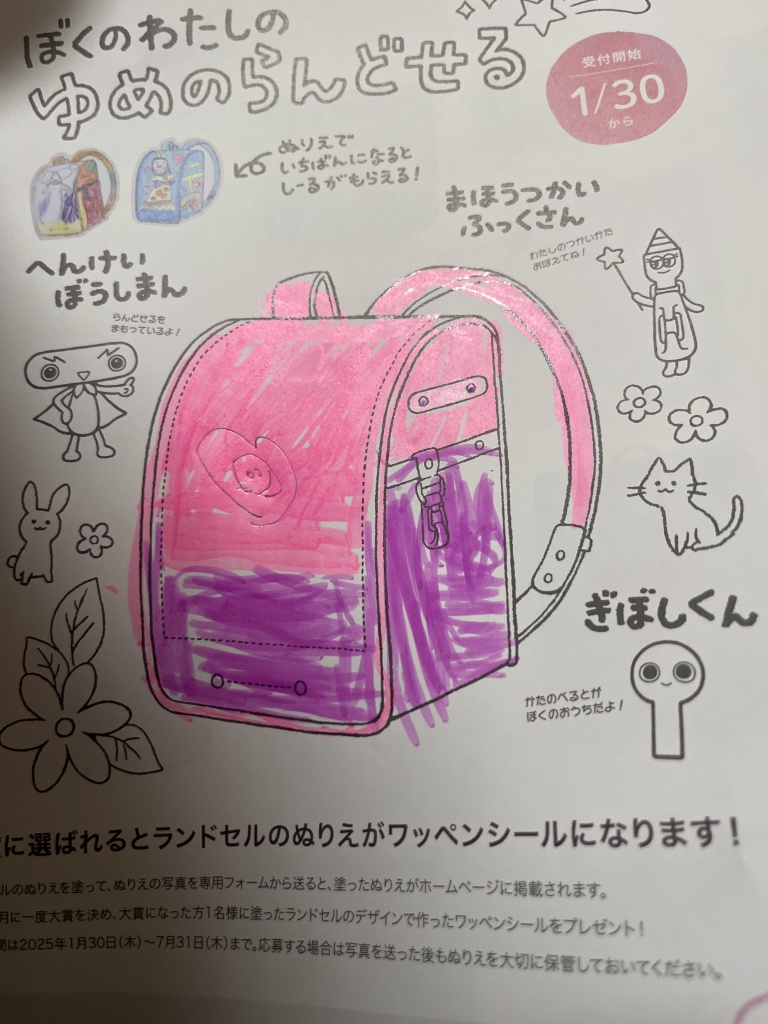 ぼくのわたしの
ゆめのらんどせる
受付開始
1/30
から
ぬりえで
いちばんになると
しーるがもらえる!
まほうつかい
ふっくさん
わたしのつかいかた
おぼえてね!
へんけい
ぼうしまん
らんどせるを
まもっているよ!
ぎぼしくん
かたのべるとが
ぼくのおうちだよ!
に選ばれるとランドセルのぬりえがワッペンシールになります!
ルのぬりえを塗って、ぬりえの写真を専用フォームから送ると、塗ったぬりえがホームページに掲載されます。
月に一度大賞を決め、大賞になった方1名様に塗ったランドセルのデザインで作ったワッペンシールをプレゼント!
間は2025年1月30日(木)〜7月31日(木)まで。応募する場合は写真を送った後もぬりえを大切に保管しておいてください。